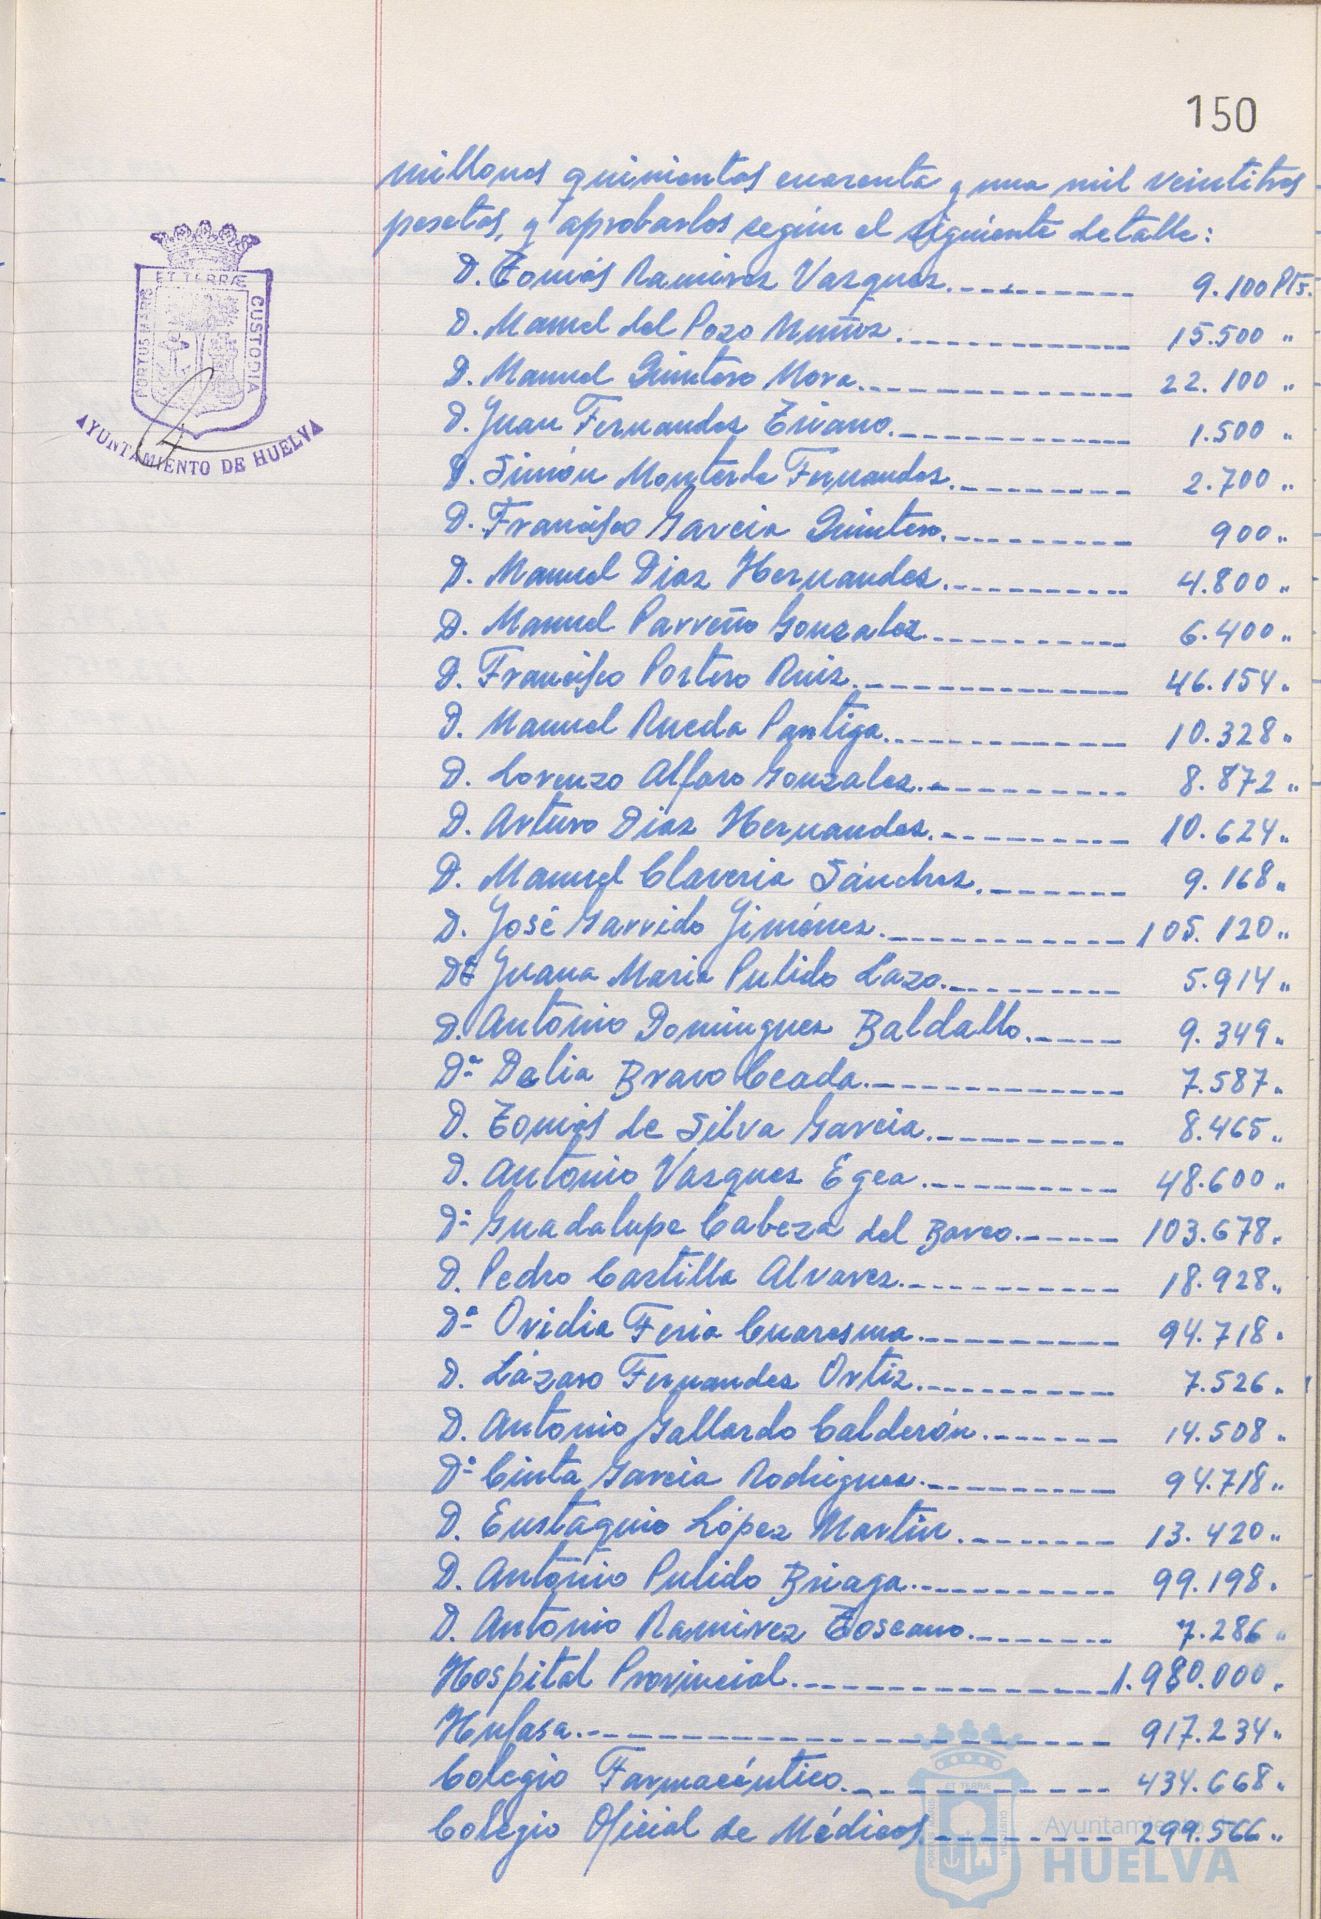 150
millones quinientas cuarenta y una mil veintitres
pesetas, y aprobarlos según el siguiente detalle:
D. Tomás Ramirez Vazquez 9.100 Pts.
D. Manuel del Pozo Muñoz 15.500 "
D. Manuel Quintero Mora 22.100 "
D. Juan Fernandez 1.500 "
D. Simón Monterde Fernandez 2.700 "
D. Francisco Garcia Quintero 900 "
D. Manuel Diaz Hernandez 4.800 "
D. Manuel Parreño Gonzalez 6.400 "
D. Francisco Portero Ruiz 46.154 "
D. Manuel Rueda Pantiga 10.328 "
D. Lorenzo Alfaro Gonzalez 8.872 "
D. Arturo Diaz Hernandez 10.624 "
D. Manuel Claveria Sánchez 9.168 "
D. José Garrido Jiménez 105.120 "
Dª Juana Maria Pulido Lazo 5.914 "
D. Antonio Dominguez Baldallo 9.349 "
Dª Dalia Bravo Ceada 7.587 "
D. Tomás de Silva Garcia 8.465 "
D. Antonio Vazquez Egea 48.600 "
Dª Guadalupe Cabeza del Barco 103.678 "
D. Pedro Castilla Alvarez 18.928 "
Dª Ovidia Feria Cuaresma 94.718 "
D. Lázaro Fernandez Ortiz 7.526 "
D. Antonio Gallardo Calderón 14.508 "
Dª Cinta Garcia Rodriguez 94.718 "
D. Eustaquio López Martín 13.420 "
D. Antonio Pulido Briaga 99.198 "
D. Antonio Ramirez Toscano 7.286 "
Hospital Provincial 1.980.000 "
Hufasa 917.234 "
Colegio Farmacéutico 434.668 "
Colegio Oficial de Médicos 299.566 "
PORTUS MARIS ET TERRÆ CUSTODIA
AYUNTAMIENTO DE HUELVA
Ayuntamiento de
HUELVA